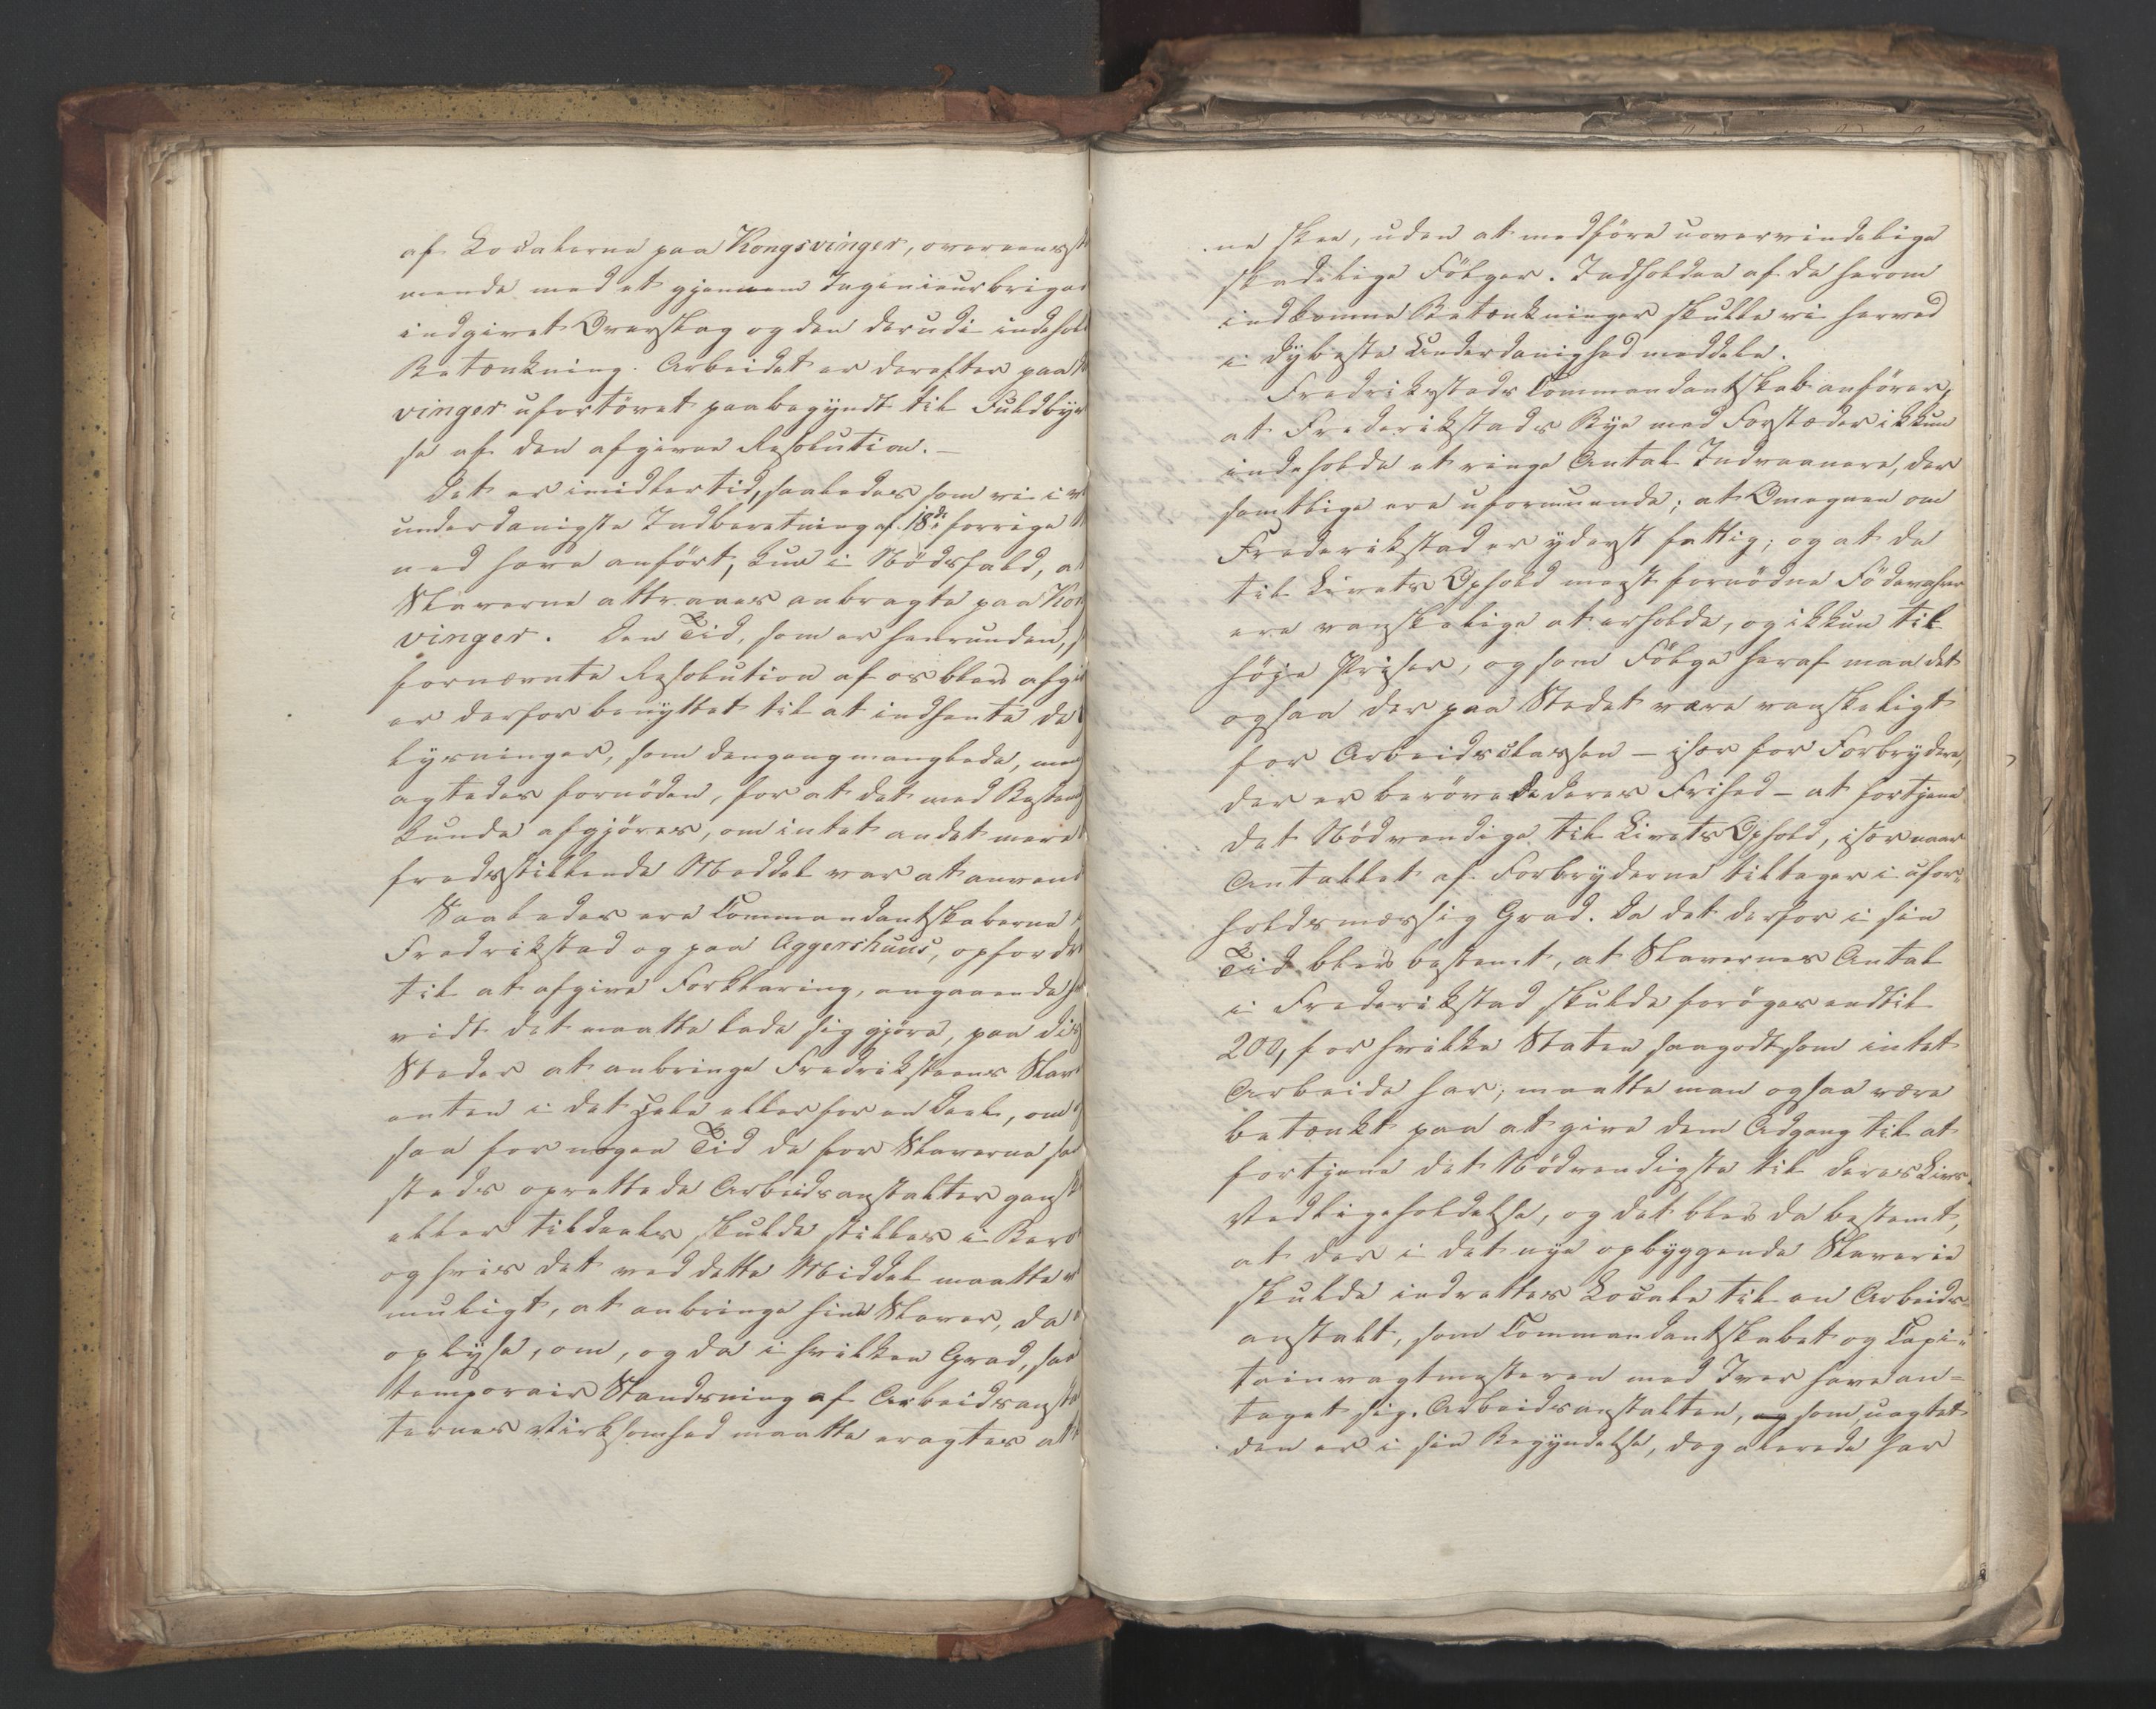 af Localerne paa Kongsvinger, overeensst
mende med et gjennem Ingenieurbrigad
indgivet Overslag og den derudi indehol
Betænkning. Arbeidet er derefter paa
vinger ufortövet paabegyndt til Fuldbyr
se af den afgivne Resolution. —
Det er imidlertid, saaledes som vi i v
underdanigste Indberetning af 18de forrige
ned have anfört, kun i Nödsfald, a
Slaverne attraaes anbragte paa Kon
vinger. Den Tid, som er henrunden, s
fornævnte Resolution af os blev afgi
er derfor benyttet til at indhente de
lysninger, som dengang manglede, men
agtedes fornöden, for at det med Bestem
kunde afgjöres, om intet andet mere
fredsstillende Middel var at anvend
Saaledes ere Commandantskaberne
Fredrikstad og paa Aggershuus, opfordr
til at afgive Forklaring, angaaende h
vidt det maatte lade sig gjöre, paa di
Steder at anbringe Fredrikssteens Slav
enten i det Hele eller for en Deel, om
saa for nogen Tid de for Slaverne sa
steds oprettede Arbeidsanstalter ganst
eller tildeels skulde stilles i Bero
og hvis det ved dette Middel maatte v
muligt, at anbringe hine Slaver, da
oplyse, om, og da i hvilken Grad, saa
temporair Standsning af Arbeidsansta
ternes Virksomhed maatte eragtes at
ne skee, uden at medföre uovervindelige
skadelige Fölger. Indholdet af de herom
indkomne Betænkninger skulle vi herved
i dybeste Underdanighed meddele.
Fredriksstads Commandantskab anförer,
at Frederikstads Bye med Forstæder ikkun
indeholde et ringe Antal Indvaanere, der
samtlige ere uformuende; at Omegnen om
Frederikstad er yderst fattig; og at de
til Livets Ophold mest fornödne Födevahrer
ere vanskelige at erholde, og ikkun til
höje Priser, og som Fölge heraf maa det
ogsaa der paa Stedet være vanskeligt
for Arbeidsclassen — især for Forbrydere,
der er berövede deres Frihed — at fortjene
det Nödvendige til Livets Ophold, især naar
Antallet af Forbryderne tiltager i ufor¬
holdsmæssig Grad. Da det derfor i sin
Tid blev bestemt, at Slavernes Antal
i Frederikstad skulde foröges endtil
200, for hvilke Staten saagodtsom intet
Arbeide har; maatte man ogsaa være
betænkt paa at give dem Adgang til at
fortjene det Nödvendigste til deres Livs
Vedligeholdelse, og det blev da bestemt,
at der i det nye opbyggende Slaverie
skulde indrettes Locale til en Arbeids¬
anstalt, som Commandantskabet og Capi¬
tainvagtmesteren med Iver have an=
taget sig. Arbeidsanstalten, og som, uagtet
den er i sin Begyndelse, dog allerede har